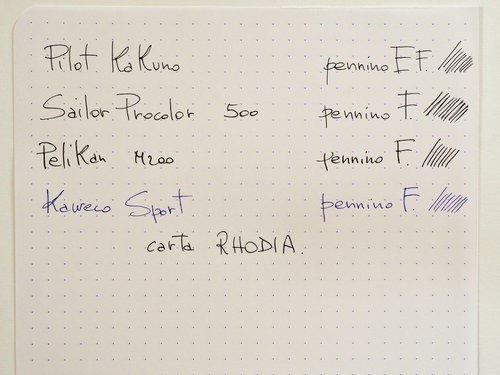 Pilot Kakuno pennino EF.
Sailor Procolor 500 pennino F.
Pelikan M200 pennino F.
Kaweco Sport pennino F.
carta RHODIA.